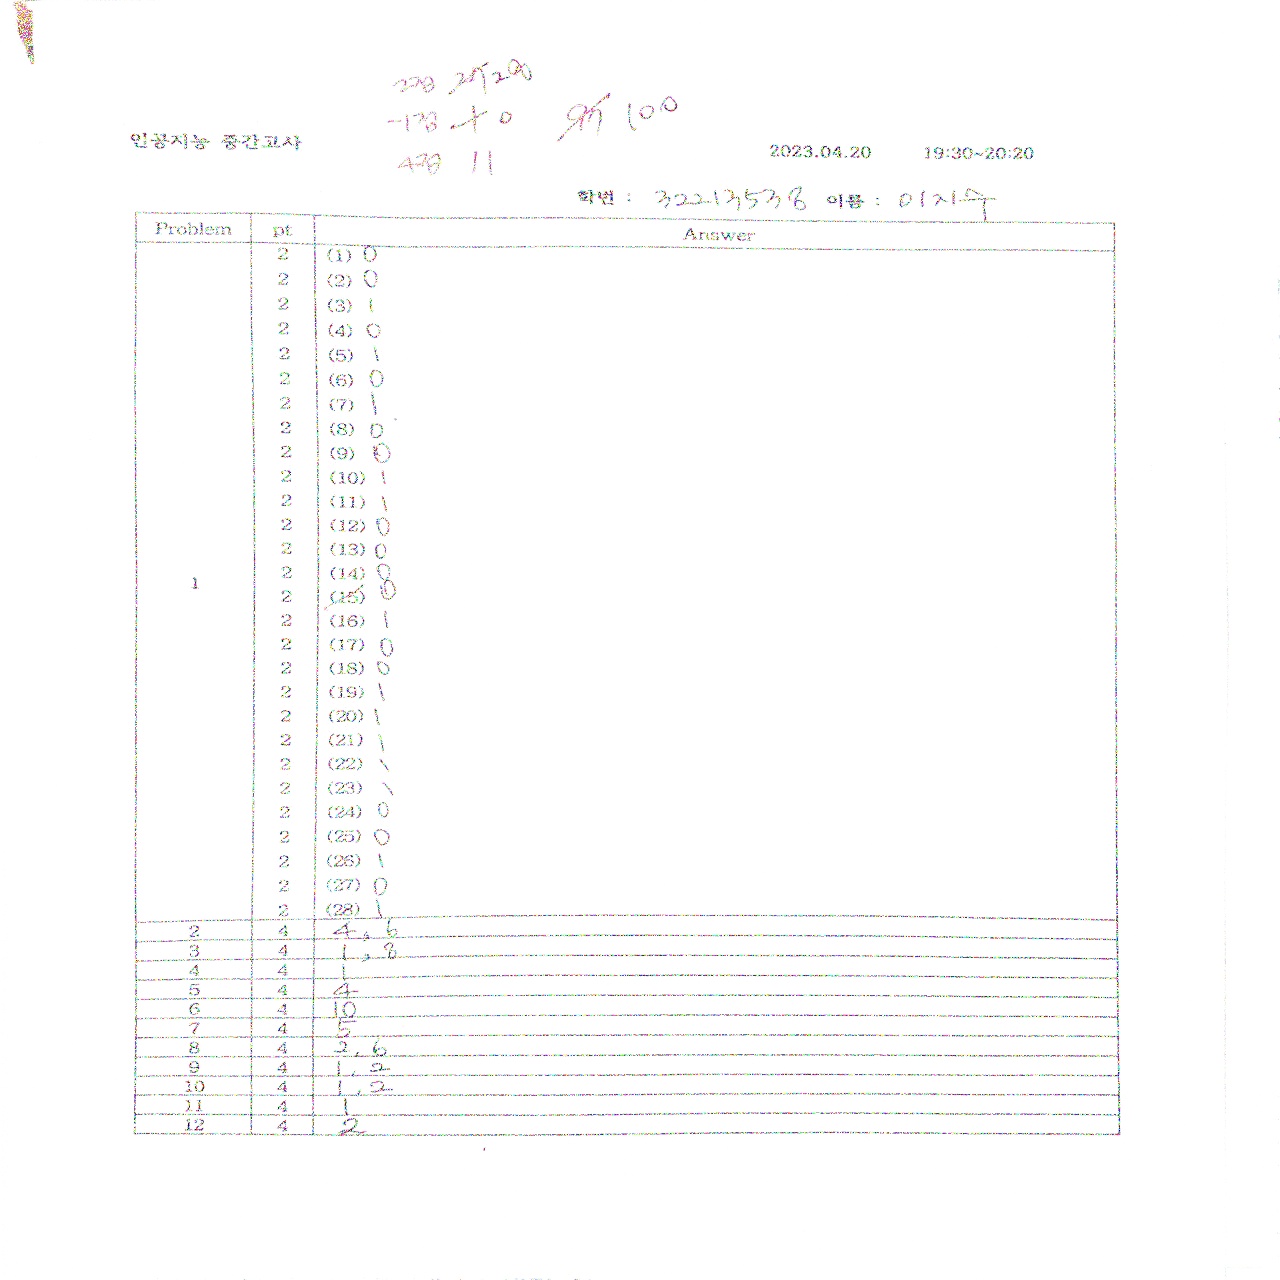 2점 28
-1점 0 100
4점 11
인공지능 중간고사
2023.04.20 19:30~20:20
학번 : 32213538 이름 : 이지수
Problem pt Answer
2 (1) 0
2 (2) 0
2 (3) 1
2 (4) 0
2 (5) 1
2 (6) 0
2 (7) 1
2 (8) 0
2 (9) 0
2 (10) 1
2 (11) 1
2 (12) 0
2 (13) 0
2 (14) 0
1 2 (15) 0
2 (16) 1
2 (17) 0
2 (18) 0
2 (19) 1
2 (20) 1
2 (21) 1
2 (22) 1
2 (23) 1
2 (24) 0
2 (25) 0
2 (26) 1
2 (27) 0
2 (28) 1
2 4 4, 6
3 4 1, 8
4 4 1
5 4 4
6 4 10
7 4 5
8 4 2, 6
9 4 1, 2
10 4 1, 2
11 4 1
12 4 2